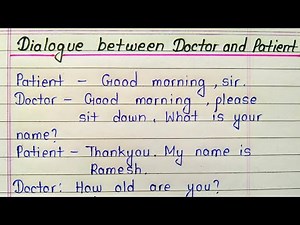 Dialogue between Doctor and Patient
Patient - Good morning, sir.
Doctor - Good morning, please
sit down. What is your
name?
Patient - Thankyou. My name is
Ramesh.
Doctor: How old are you?